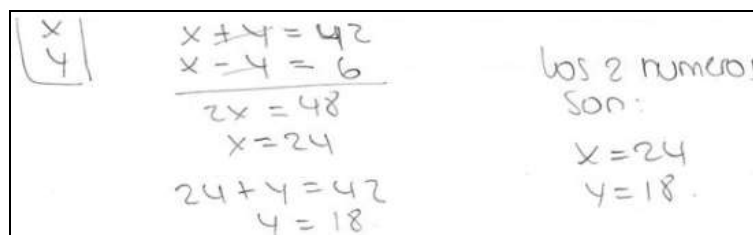 x
y
x + y = 42
x - y = 6
2x = 48
x = 24
24 + y = 42
y = 18
los 2 numeros
son:
x = 24
y = 18.